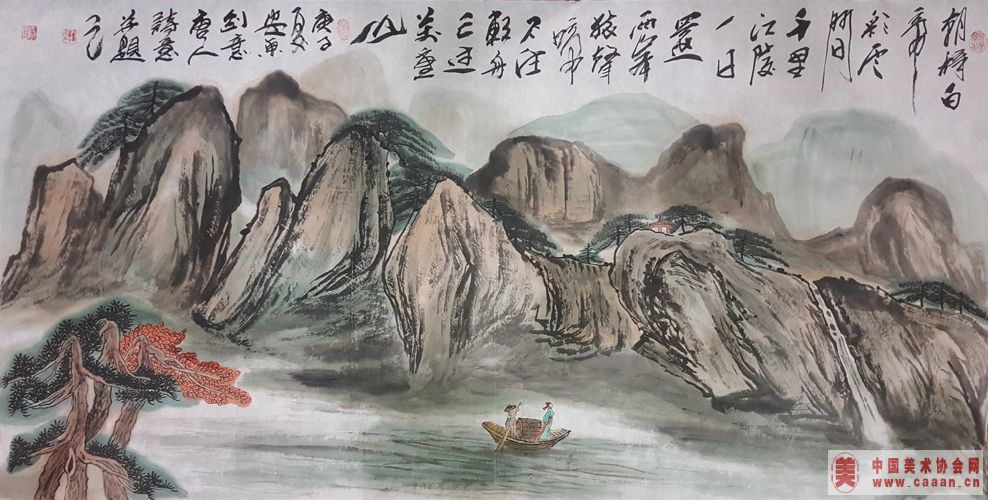 朝辞白
帝
彩云
間
千里
江陵
一日
還
两岸
猿聲
啼
不住
軽舟
已过
萬重
山
庚子
夏
创意
唐人
詩意
并題
中国美术协会网
www.caaan.cn